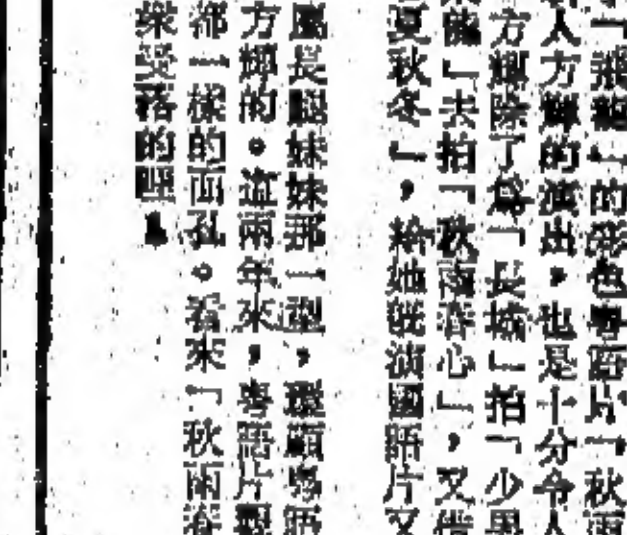 的彩色粵語片「秋雨
人方輝的演出，也是十分令人
方輝除了為「長城」拍「少男
」去拍「秋雨春心」，又借
夏秋冬」，給她既演國語片又
屬長腿妹妹那一型，環顧粵語
方輝的。這兩年來，粵語片觀
都一樣的面孔。看來「秋雨春
眾受落的哩